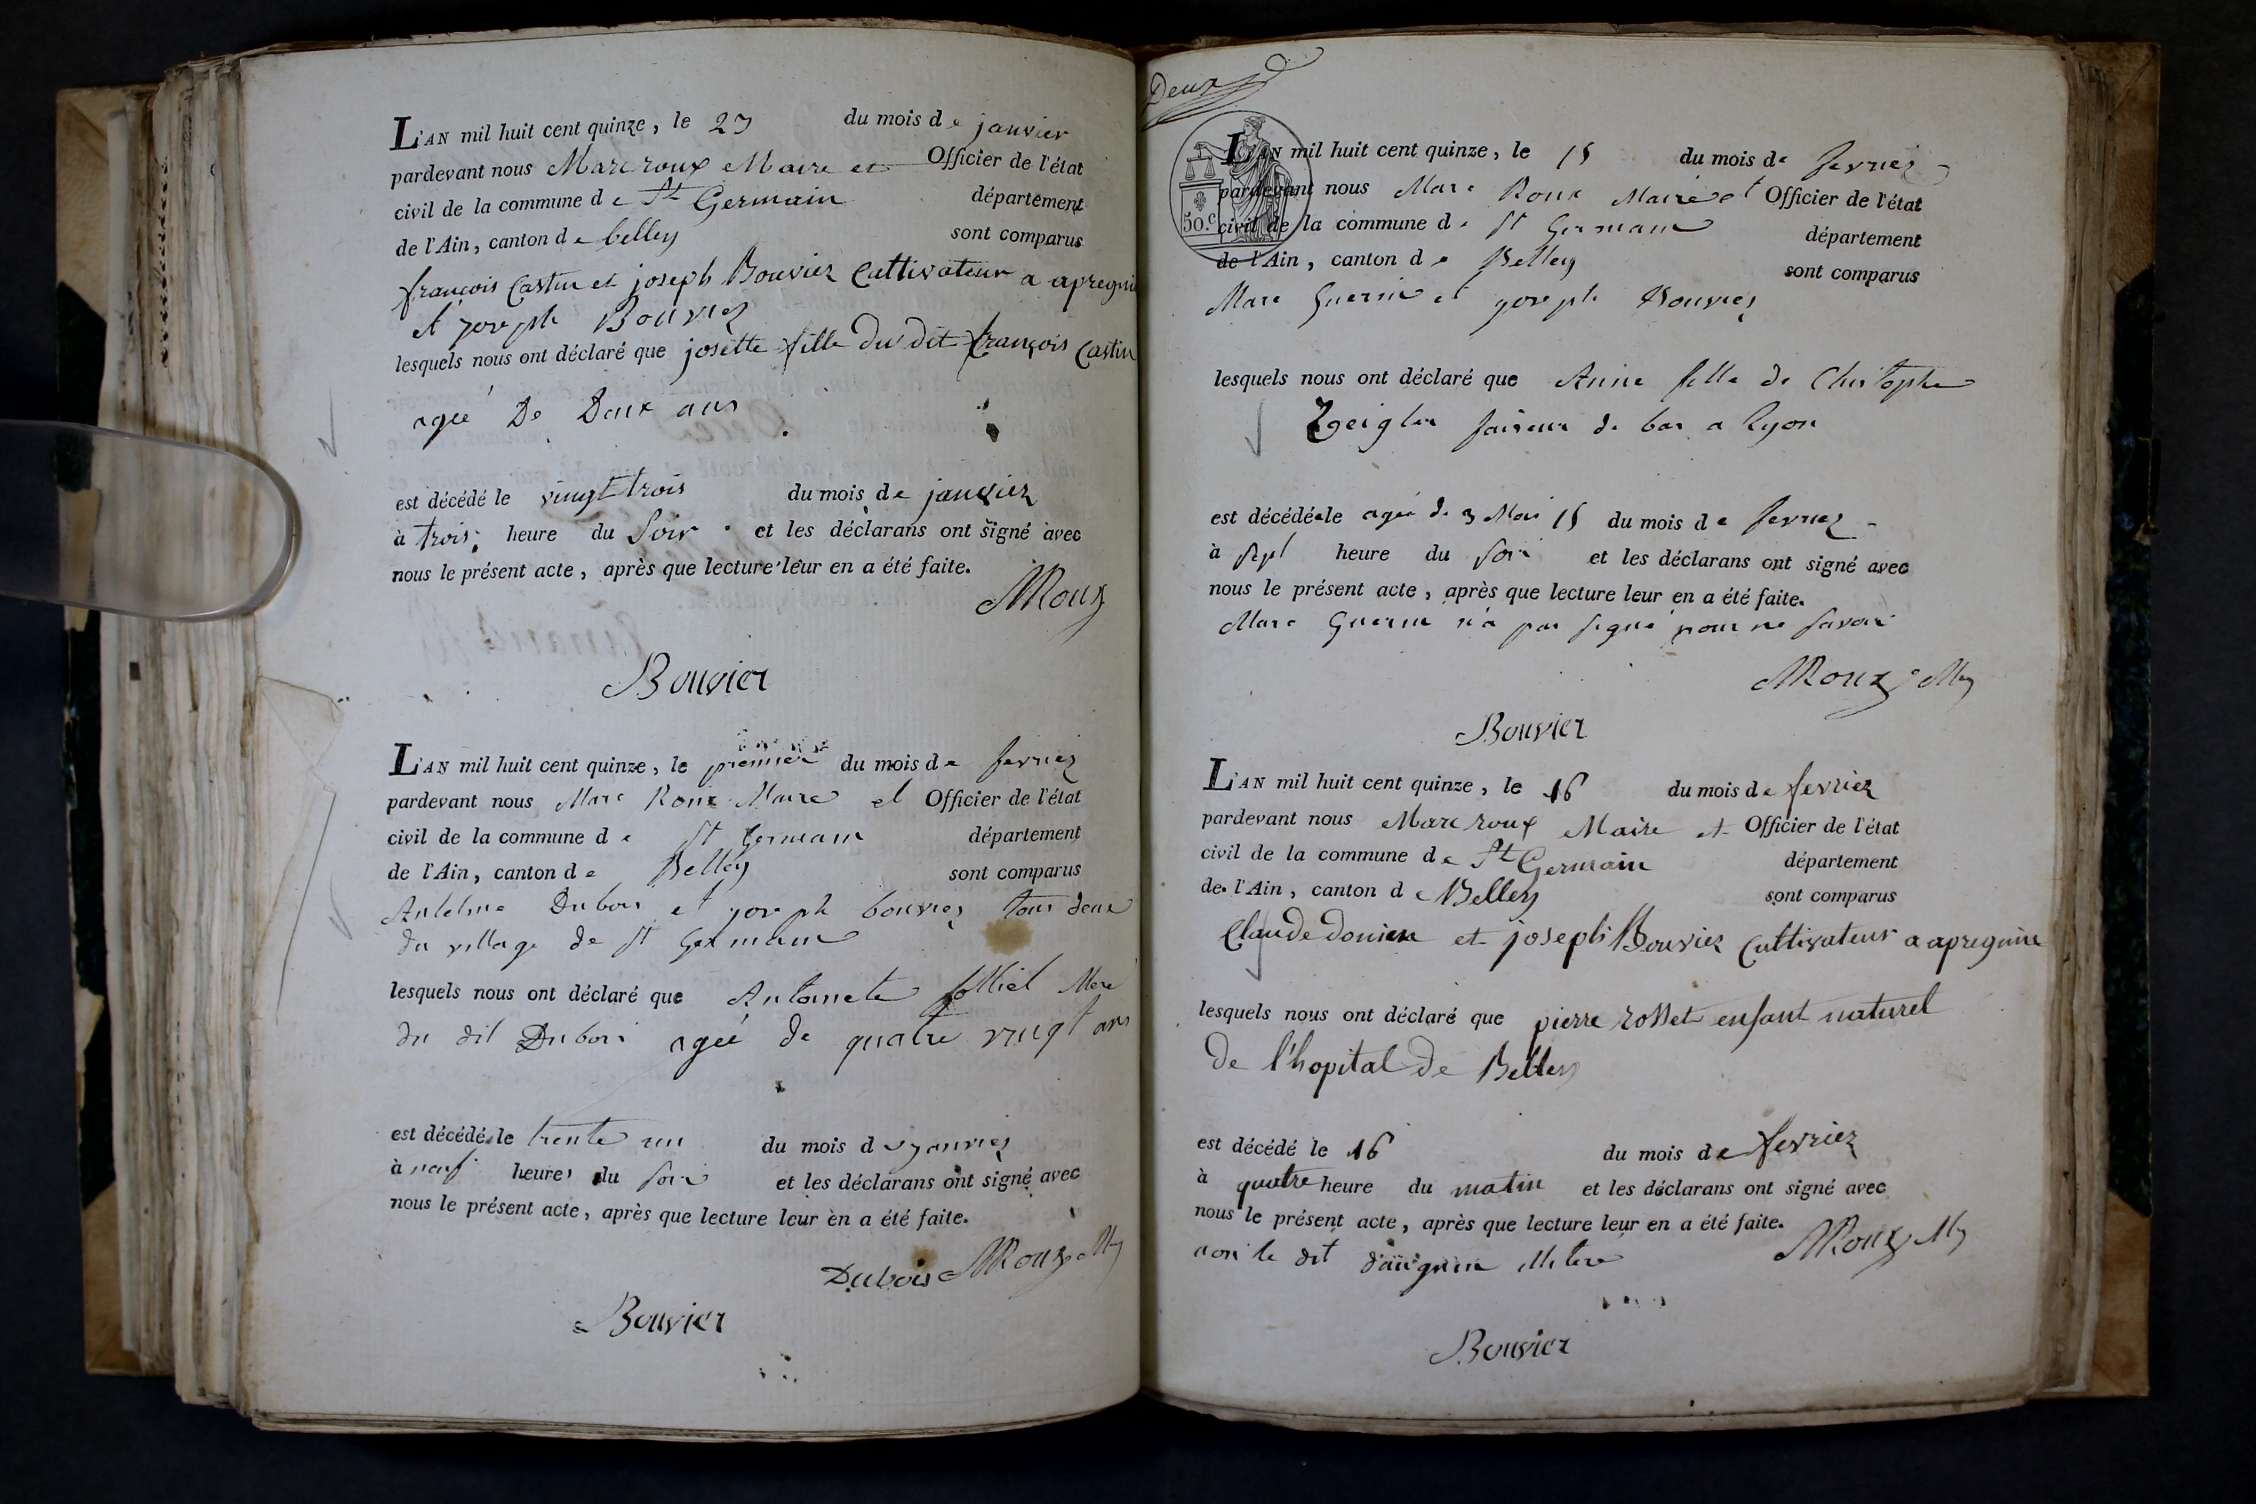 L'AN mil huit cent quinze, le 23 du mois de janvier
pardevant nous Marc roux Maire et Officier de l'état
civil de la commune de St Germain département
de l'Ain, canton de belley sont comparus
françois Castin et joseph Bouvier Cultivateur a apregnin
et joseph Bouvier
lesquels nous ont déclaré que josette fille du dit françois Castin
agée De Deux ans
est décédé le vingt trois du mois de janvier
à trois heure du soir et les déclarans ont signé avec
nous le présent acte, après que lecture leur en a été faite.
MRoux
Bouvier
L'AN mil huit cent quinze, le premier du mois de fevrier
pardevant nous Marc Roux Maire et Officier de l'état
civil de la commune de St Germain département
de l'Ain, canton de Belley sont comparus
Antelme Dubois et joseph bouvier tous deux
du village de St Germain
lesquels nous ont déclaré que Antoinete Mere
du dit Dubois agée de quatre vingt ans
est décédée le trente un du mois de janvier
à neuf heures du soir et les déclarans ont signé avec
nous le présent acte, après que lecture leur en a été faite.
Dubois MRoux
Bouvier
Deux
50.c
L'AN mil huit cent quinze, le 15 du mois de fevrier
pardevant nous Marc Roux Maire et Officier de l'état
civil de la commune de St Germain département
de l'Ain, canton de Belley sont comparus
Marc Guerin et joseph Bouvier
lesquels nous ont déclaré que Anne fille de Christophe
Zgeigler faiseur de bas a Lyon
est décédée le agée de 3 Mois 15 du mois de fevrier
à sept heure du soir et les déclarans ont signé avec
nous le présent acte, après que lecture leur en a été faite.
Marc Guerin n'a pas signé pour ne savoir
MRoux
Bouvier
L'AN mil huit cent quinze, le 16 du mois de fevrier
pardevant nous Marc roux Maire et Officier de l'état
civil de la commune de St Germain département
de l'Ain, canton de Belley sont comparus
Claude et joseph Bouvier Cultivateur a apregnin
lesquels nous ont déclaré que pierre rosset enfant naturel
de l'hopital de Belley
est décédé le 16 du mois de fevrier
à quatre heure du matin et les déclarans ont signé avec
nous le présent acte, après que lecture leur en a été faite.
non le dit
MRoux
Bouvier